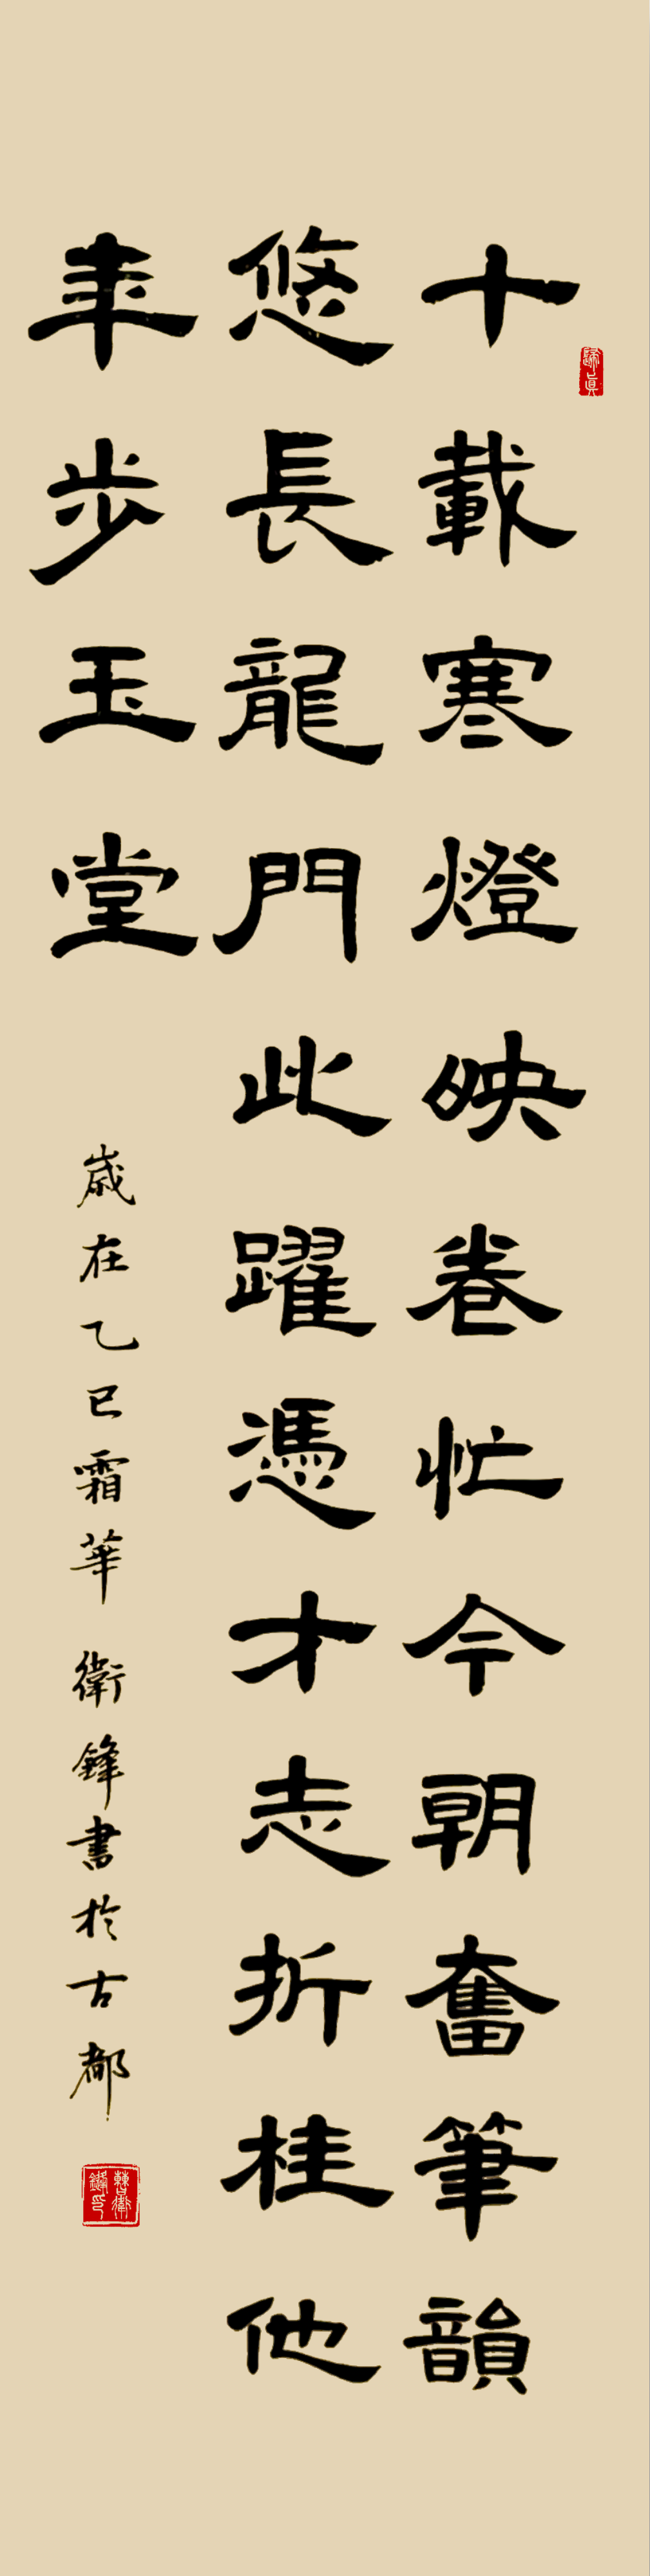 十載寒燈映卷忙今朝奮筆韻
悠長龍門此躍憑才志折桂他
年步玉堂
歲在乙巳霜華 衛鋒書於古都
歸真
曹衛鋒印